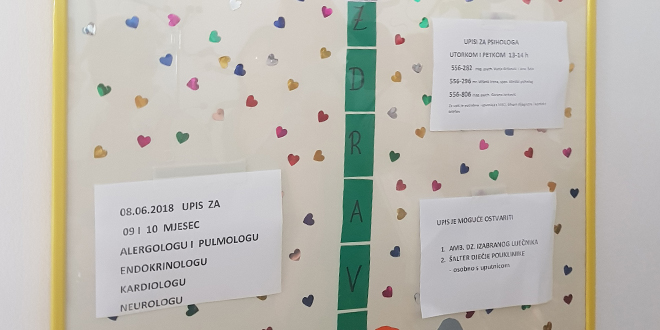 Z
D
R
A
V
UPISI ZA PSIHOLOGA
UTORKOM I PETKOM 13-14 h
556-282
556-296
556-806
08.06.2018 UPIS ZA
09 I 10 MJESEC
ALERGOLOGU I PULMOLOGU
ENDOKRINOLOGU
KARDIOLOGU
NEUROLOGU
UPIS JE MOGUĆE OSTVARITI
1. AMB. DZ. IZABRANOG LIJEČNIKA
2. ŠALTER DJEČJE POLIKLINIKE
- osobno s uputnicom